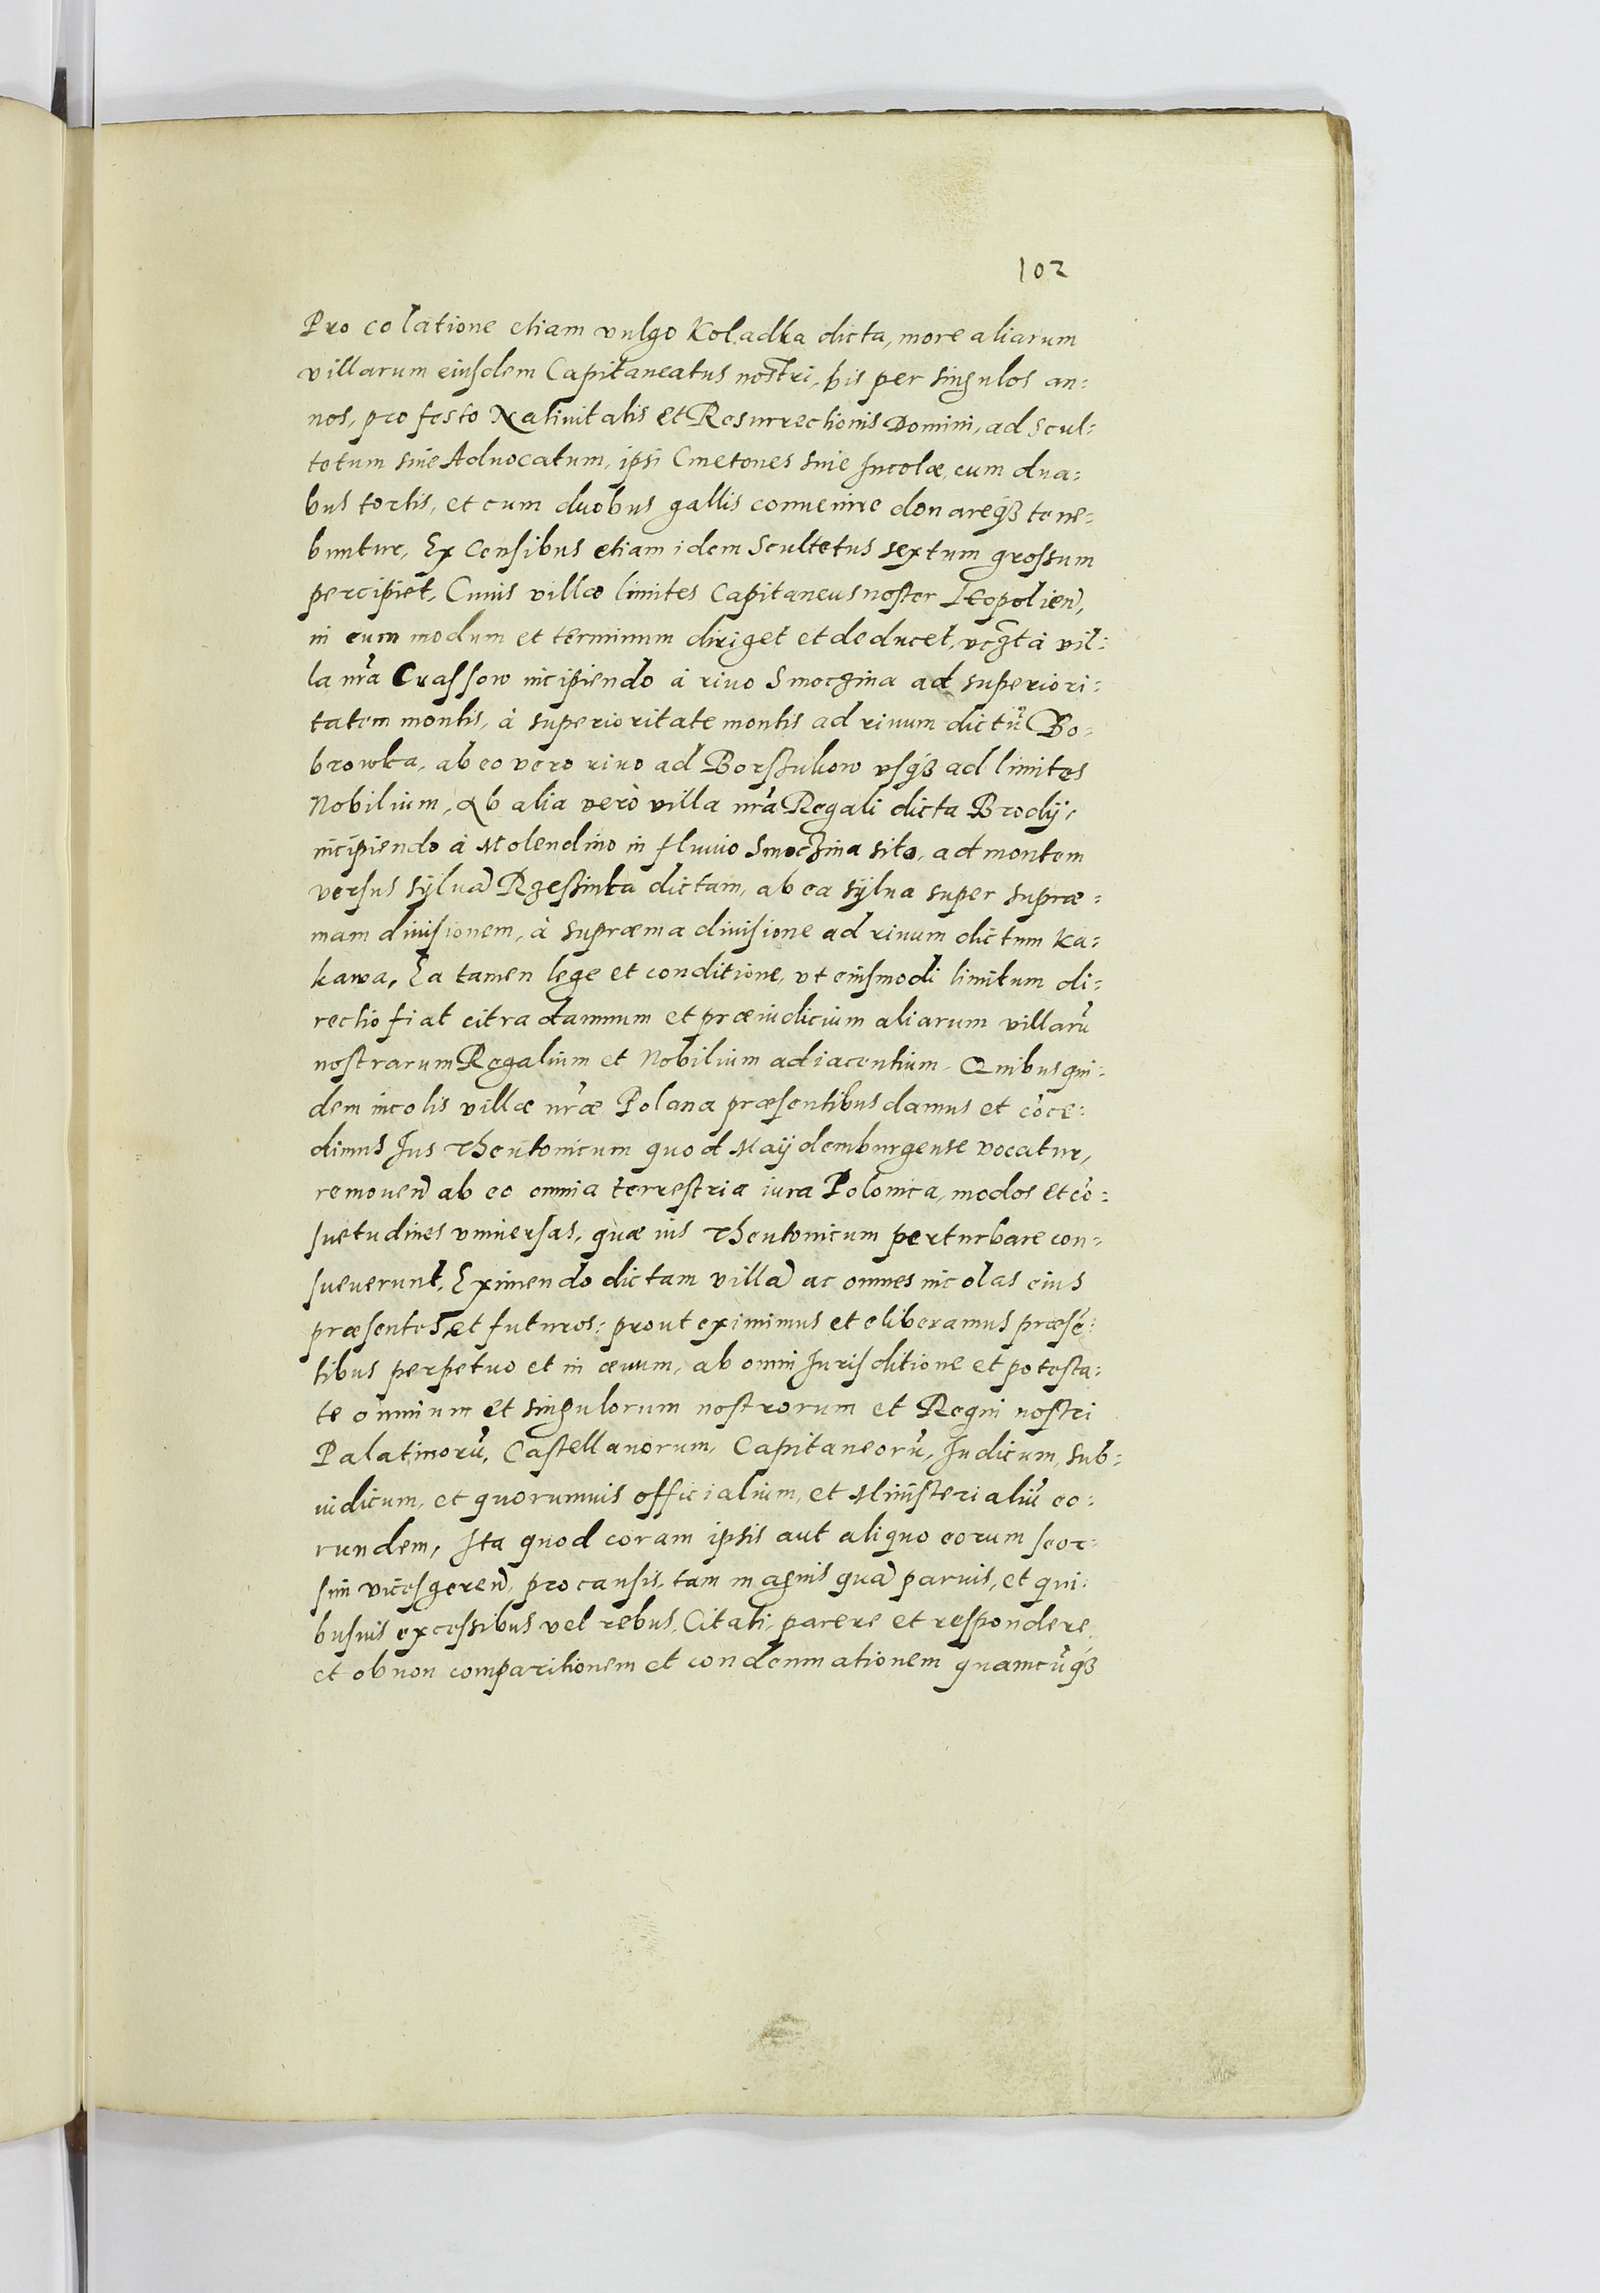 102
Pro colatione etiam vulgo Koladka dicta, more aliarum
villarum eiusdem Capitaneatus nostri, bis per singulos an:
nos, pro festo Natiuitatis et Resurrectionis Domini, ad Scul:
tetum siue Aduocatum, ipsi Cmetones siue Incolæ, cum dua:
bus tortis, et cum duobus gallis conuenire donareq3 tene:
buntur, Ex Censibus etiam idem Scultetus sextum grossum
percipiet, Cuius villæ limites Capitaneus noster Leopolien̄,
in eum modum et terminum diriget et deducet, vczt à vil:
la nr̃a Crassow incipiendo à riuo Smoczina ad superiori:
tatem montis, à superioritate montis ad riuum dictū Bo:
browka, ab eo vero riuo ad Borssukow vsq3 ad limites
Nobilium, Ab alia verò villa nr̃a Regali dicta Brodÿ,
incipiendo à Molendino in fluuio Smoczina sito, ad montem
versus sÿluā Rzessinka dictam, ab ea sÿlua super supræ:
mam diuisionem, à supræma diuisione ad riuum dictum Ka:
kawa, Ea tamen lege et conditione, vt eiusmodi limitum di:
rectio fiat citra damnum et præiudicium aliarum villarū
nostrarum Regalium et Nobilium adiacentium. Quibus qui:
dem incolis villæ nr̃æ Polana præsentibus damus et cōce:
dimus Jus Theutonicum quod Maÿdemburgense vocatur,
remouen̄ ab eo omnia terrestria iura Polonica, modos et cō:
suetudines vniuersas, quæ ius Theutonicum perturbare con:
sueuerunt, Eximendo dictam villā ac omnes incolas eius
præsentes et futuros: prout eximimus et eliberamus præsē:
tibus perpetuo et in æuum, ab omni Jurisditione et potesta:
te omnium et singulorum nostrorum et Regni nostri
Palatinorū, Castellanorum, Capitaneorū, Judicum, sub:
iudicum, et quorumuis officialium, et Ministerialiū eo:
rundem, Ita quod coram ipsis aut aliquo eorum seor:
sim vicesgeren̄, pro causis, tam magnis quā paruis, et qui:
busuis excessibus vel rebus, Citati, parere et respondere,
et ob non comparitionem et condemnationem quamcūq3